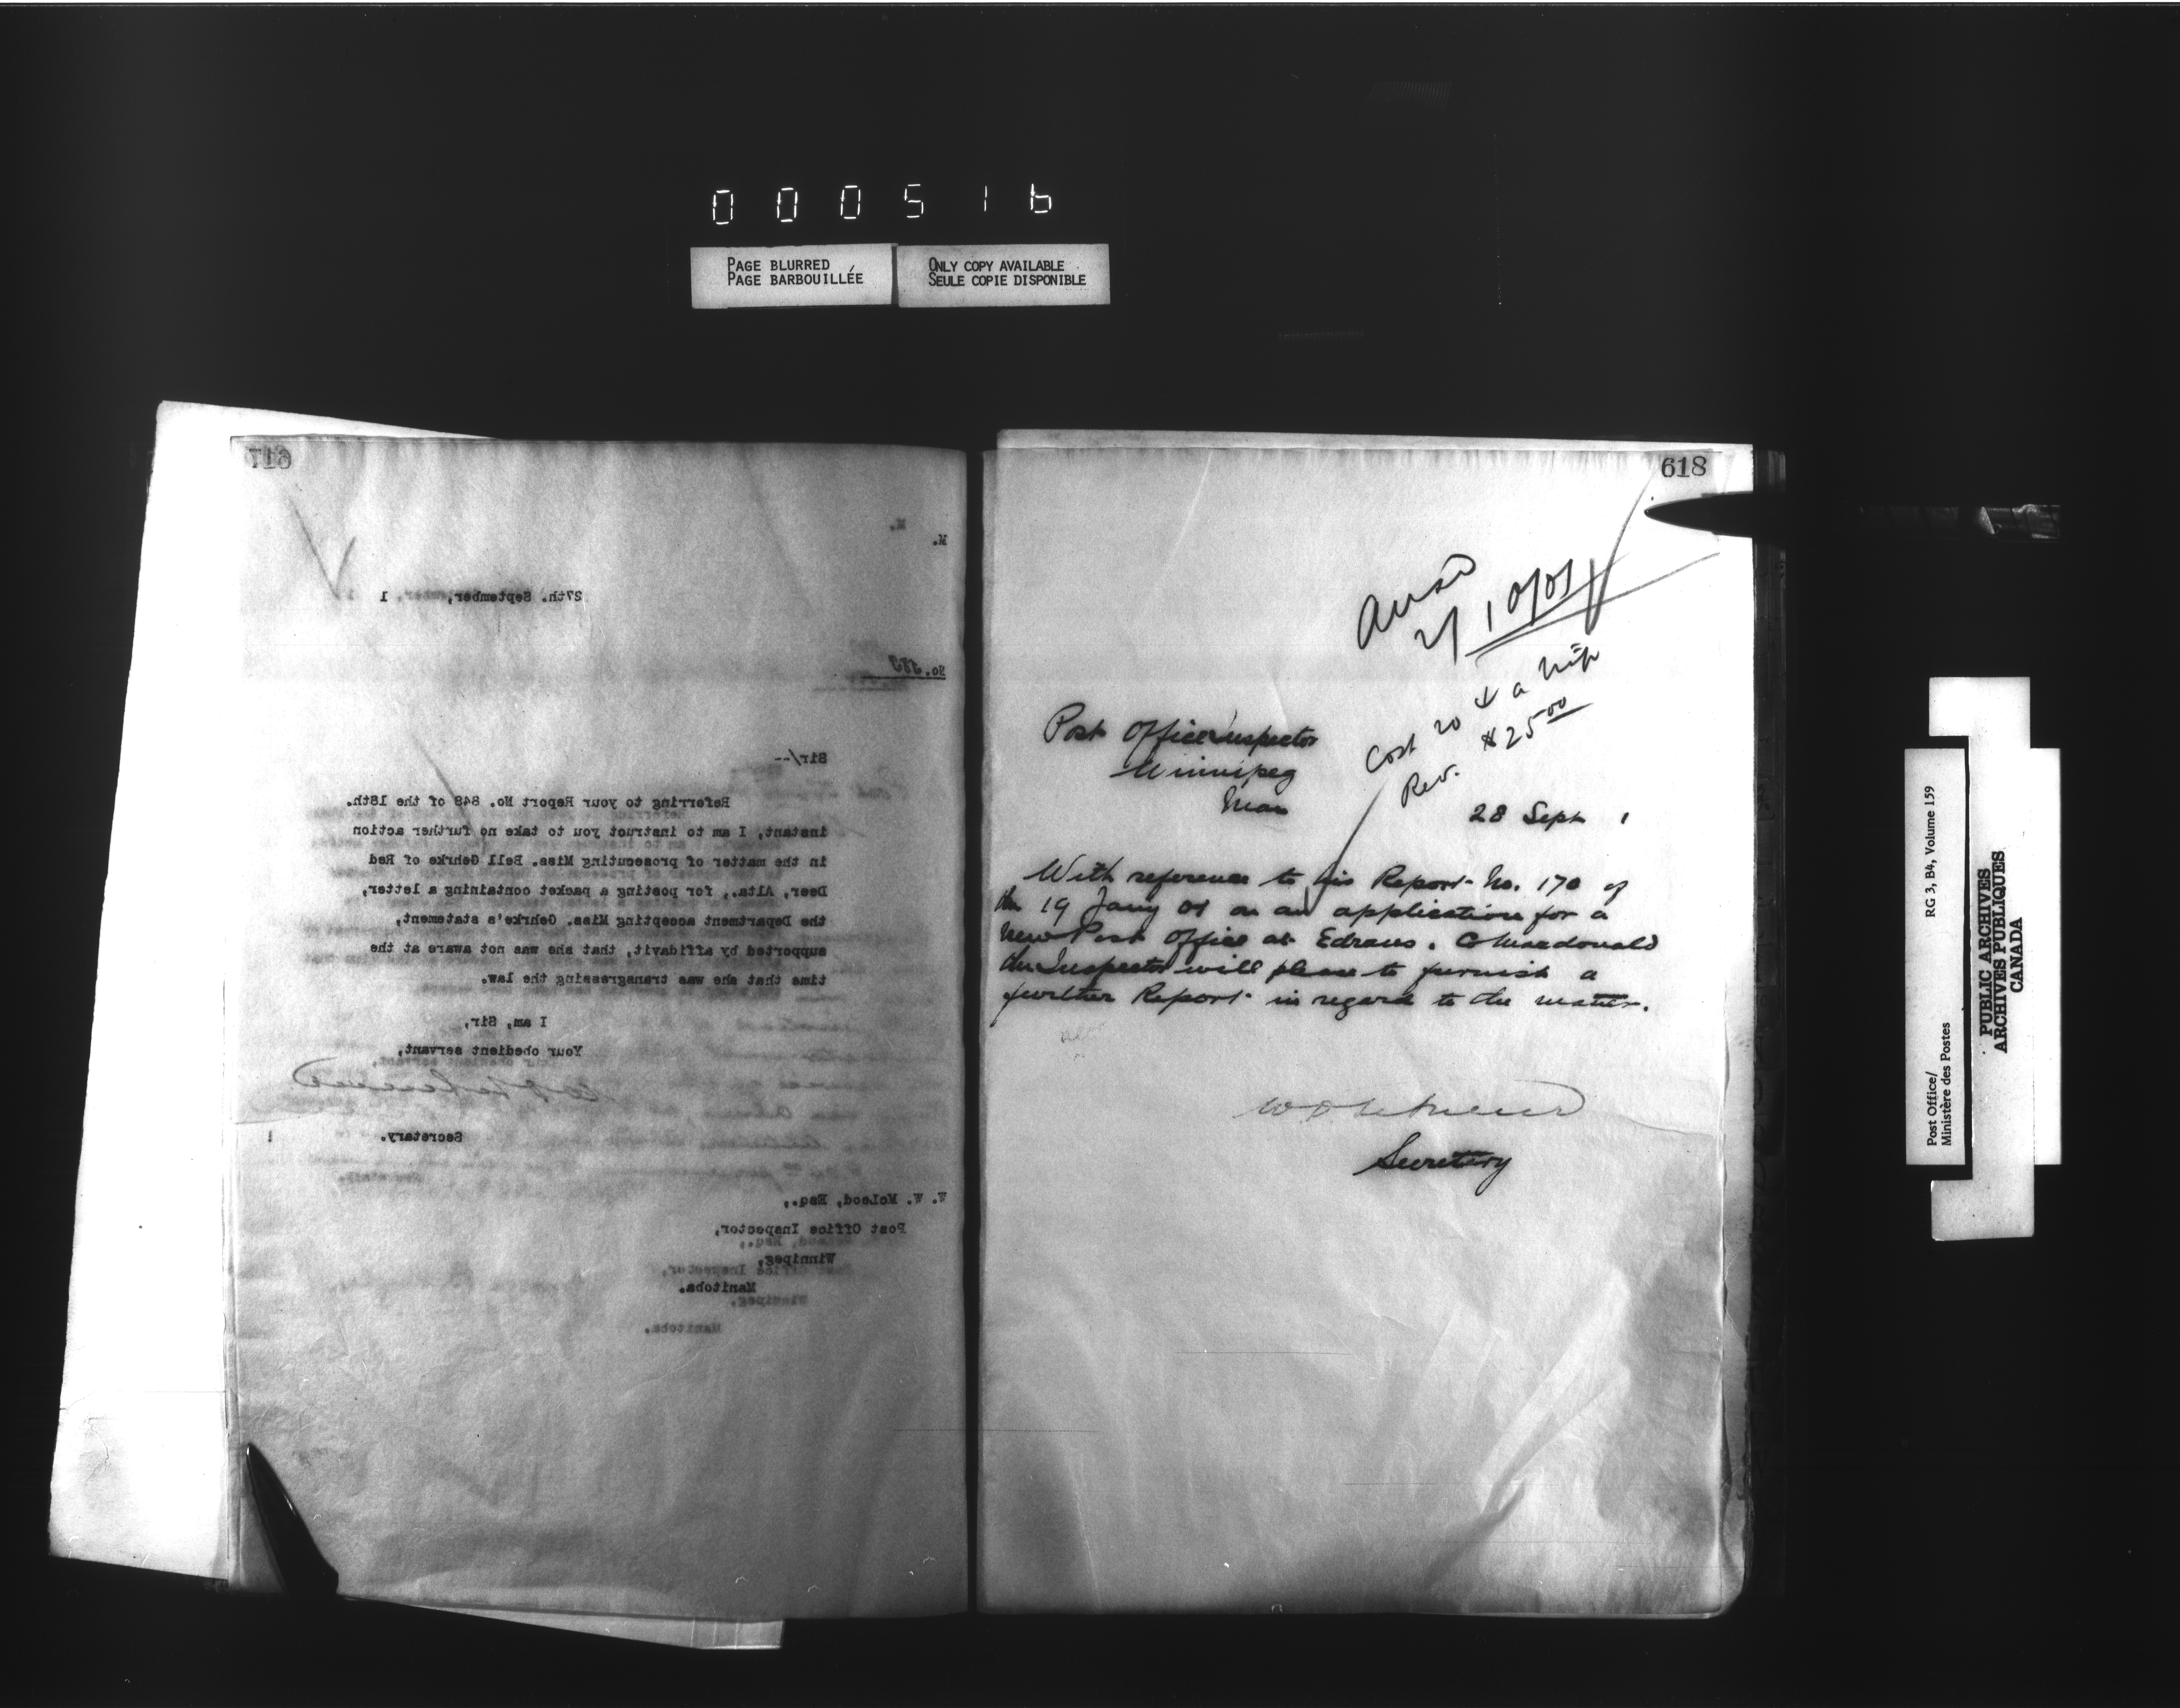 000516
PAGE BLURRED
PAGE BARBOUILLÉE
ONLY COPY AVAILABLE
SEULE COPIE DISPONIBLE
617
M.
M.
27th. September, 1
No.
Sir/--
Referring to your Report No. 848 of the 18th.
instant, I am to instruct you to take no further action
in the matter of prosecuting Miss. Bell Gehrke of Red
Deer, Alta., for posting a packet containing a letter,
the Department accepting Miss. Gehrke's statement,
supported by affidavit, that she was not aware at the
time that she was transgressing the law.
I am, Sir,
Your obedient servant,
Secretary.
W. W. McLeod, Esq.,
Post Office Inspector,
Winnipeg,
Manitoba.
618
Ansd
2/10/01
Cost 20 ¢ a trip
Rev. $25.00
Post Office Inspector
Winnipeg
Man
28 Sept 1
With reference to his Report No. 170 of
the 19 Jany 01 on an application for a
New Post Office at Edrans. C Macdonald
the Inspector will please to furnish a
further Report in regard to the matter.
Secretary
Post Office/
Ministère des Postes
RG 3, B4, Volume 159
PUBLIC ARCHIVES
ARCHIVES PUBLIQUES
CANADA